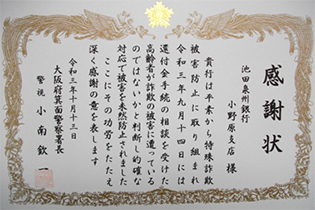 感謝状
池田泉州銀行
小野原支店 様
貴行は平素から特殊詐欺
被害防止に取り組まれ
令和三年九月十四日には
還付金手続の相談を受けた
高齢者が詐欺の被害に遭っている
のではないかと判断し的確な
対応で被害を未然防止されました
ここにその功労をたたえ
深く感謝の意を表します
令和三年十月十三日
大阪府箕面警察署長
警視 小南 欽